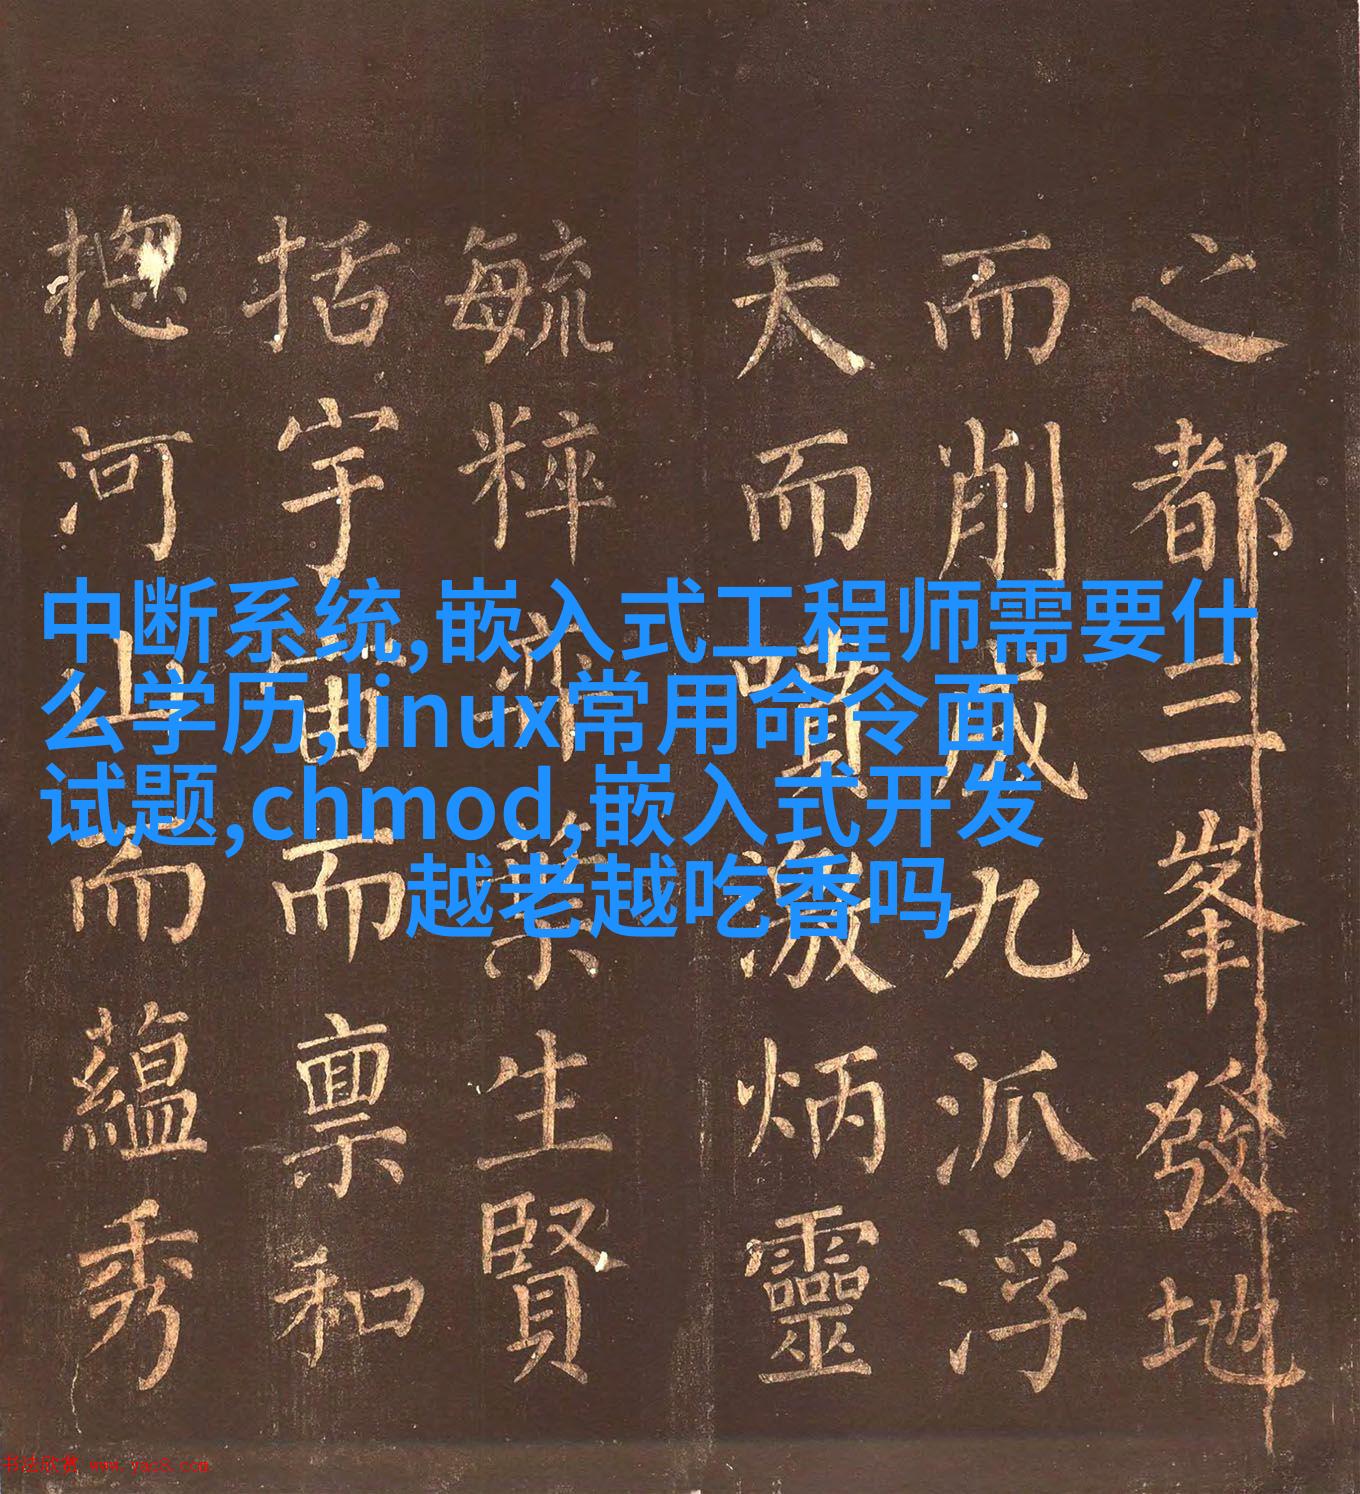 中断系统,嵌入式工程师需要什
么学历,linux常用命令面
试题,chmod,嵌入式开发
越老越吃香吗
之都三峯發地
而削成九派浮
天而噴激炳靈
毓粹奕葉生賢
括宇宙而禀和
揔河山而蘊秀
书法欣赏 www.yac8.com